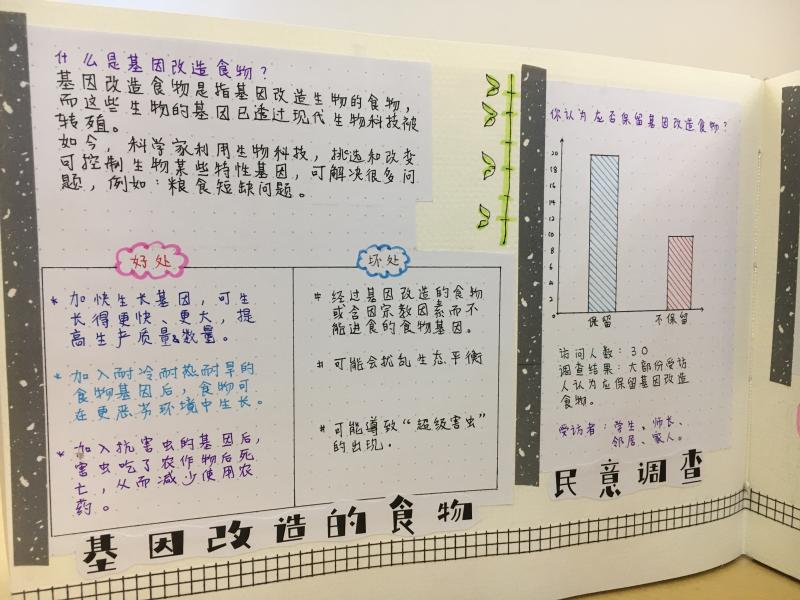 什么是基因改造食物？
基因改造食物是指基因改造生物的食物，
而这些生物的基因已透过现代生物科技被
转殖。
如今，科学家利用生物科技，挑选和改变
可控制生物某些特性基因，可解决很多问
题，例如：粮食短缺问题。
好处
* 加快生长基因，可生
长得更快、更大，提
高生产质量&数量。
* 加入耐冷耐热耐旱的
食物基因后，食物可
在更恶劣环境中生长。
* 加入抗害虫的基因后，
害虫吃了农作物后死
亡，从而减少使用农
药。
坏处
# 经过基因改造的食物
或含因宗教因素而不
能进食的食物基因。
# 可能会扰乱生态平衡
# 可能导致“超级害虫”
的出现.
基因改造的食物
你认为应否保留基因改造食物？
20
18
16
14
12
10
8
6
4
2
保留
不保留
访问人数：30
调查结果：大部份受访
人认为应保留基因改造
食物。
受访者：学生、师长、
邻居、家人。
民意调查